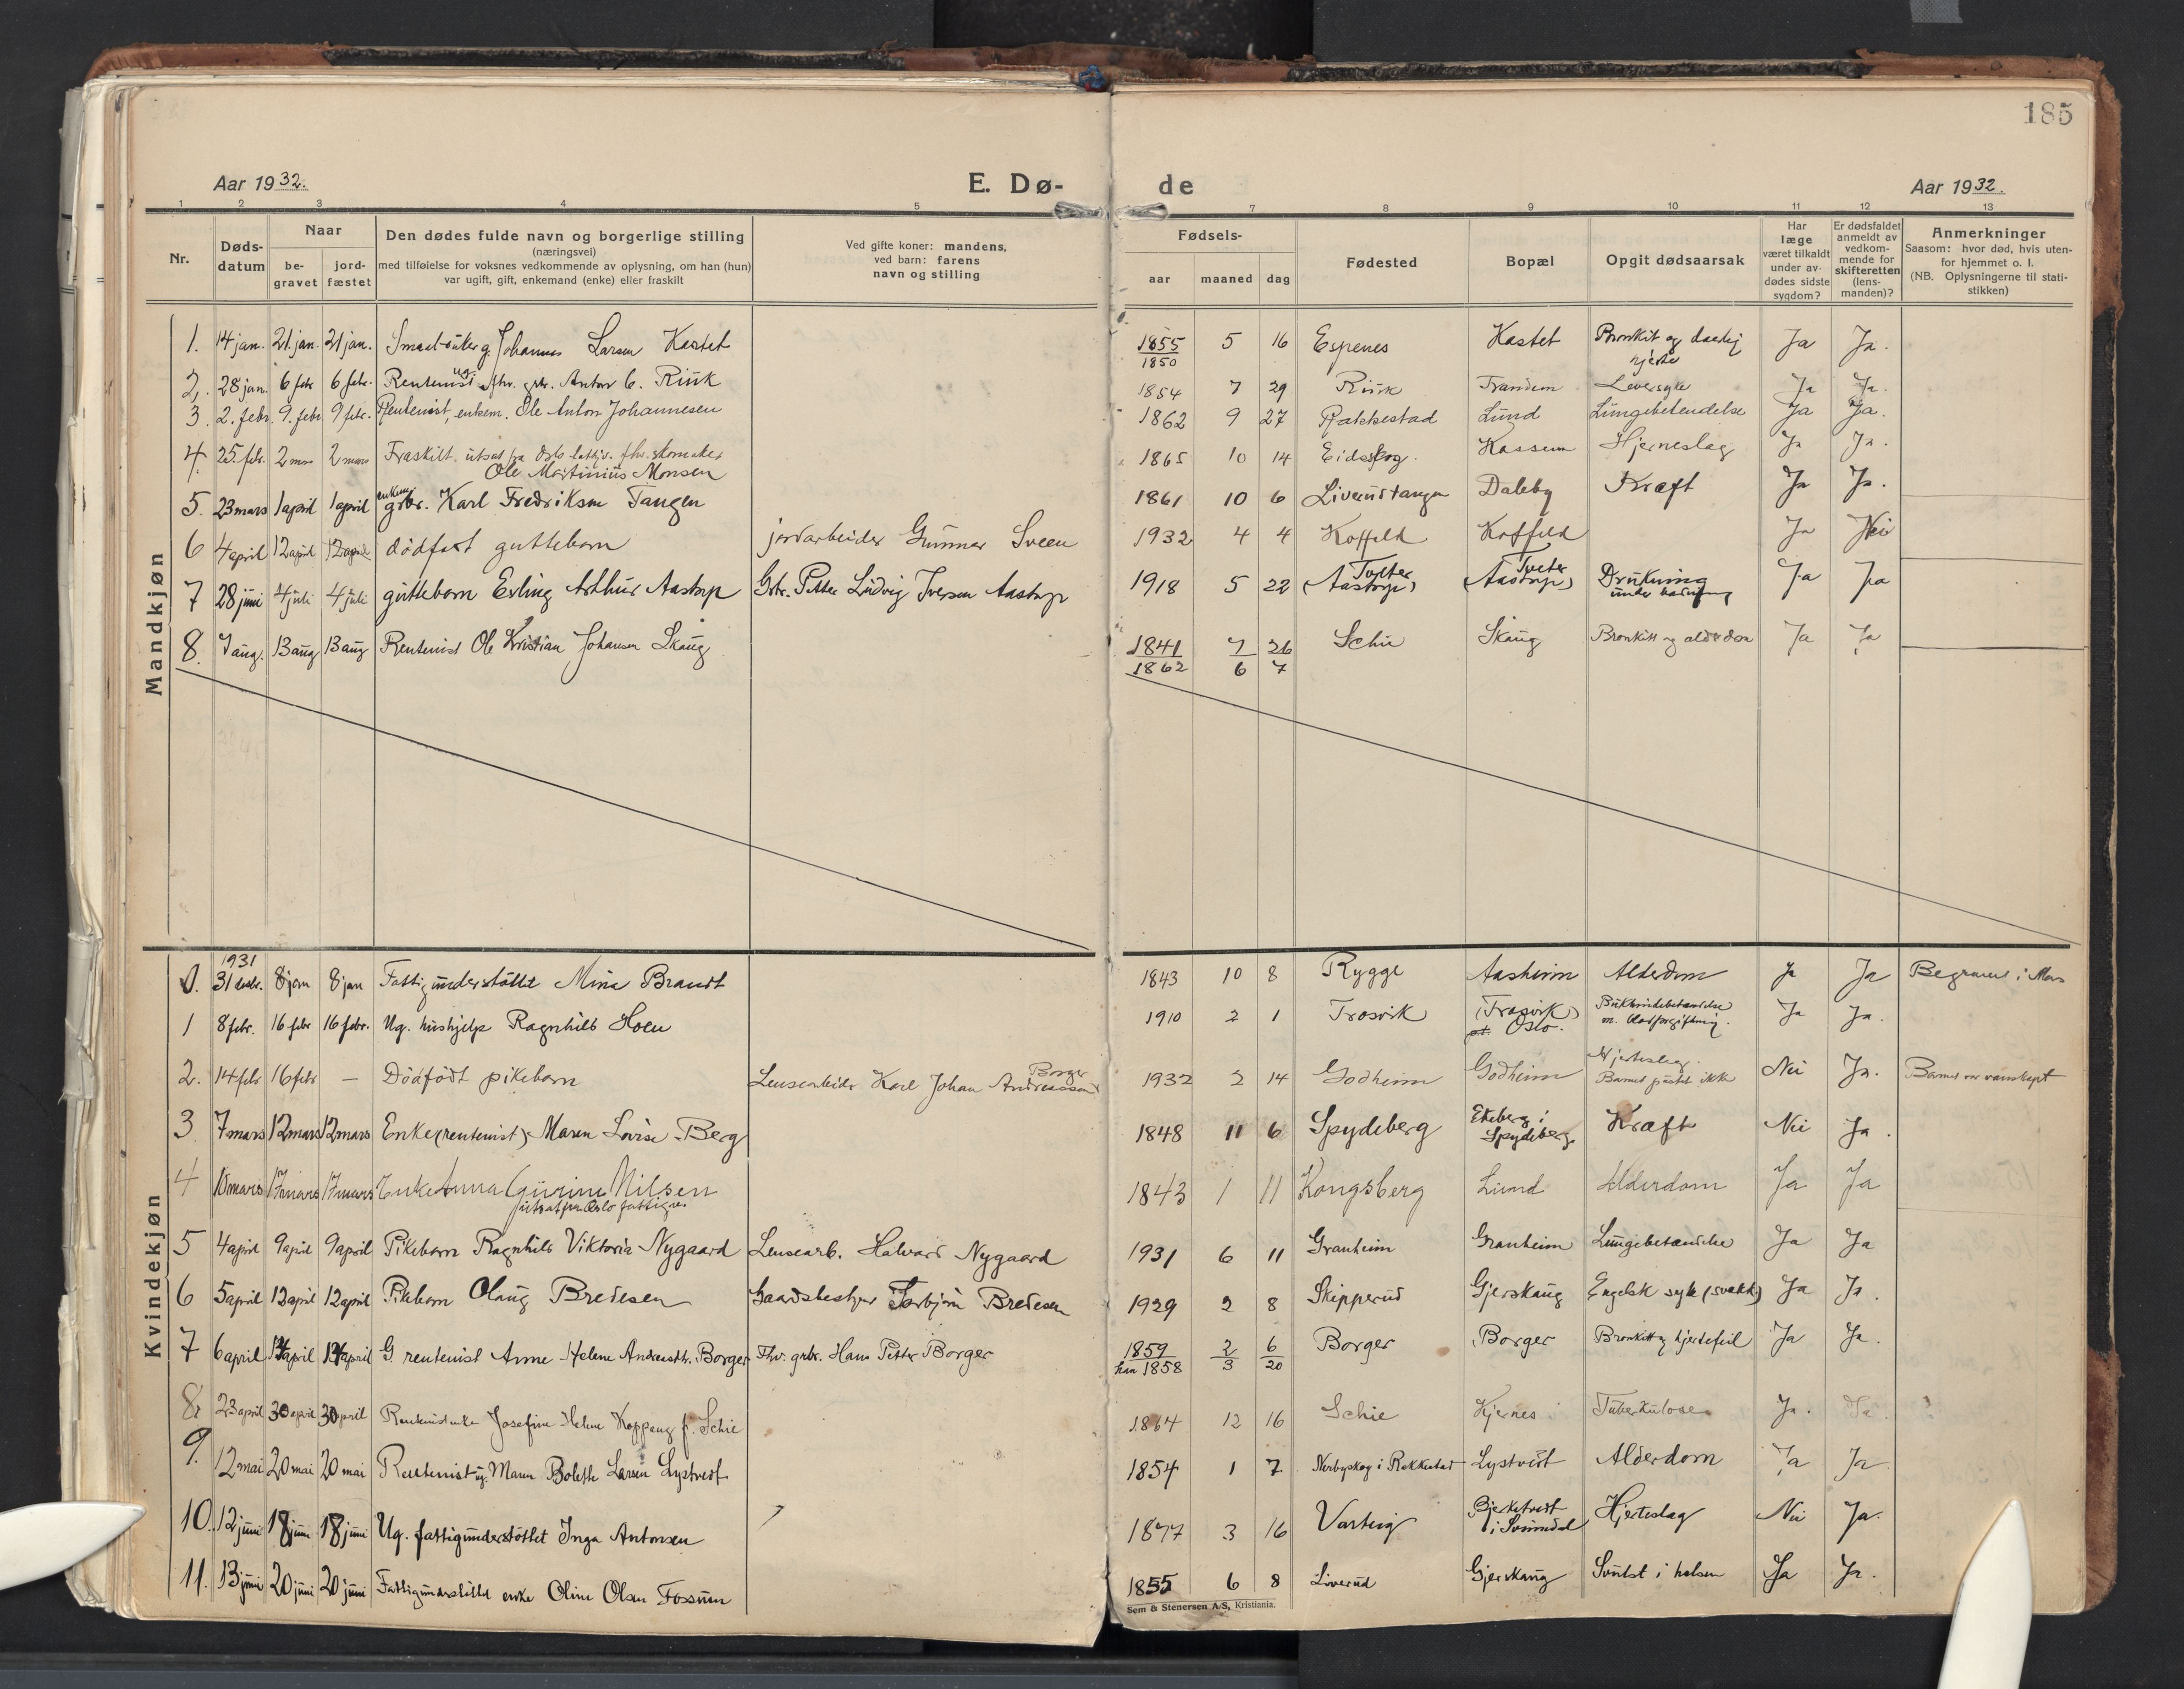 185
Aar 1932.
E. Dø-
de
Aar 1932.
1 2 3 4 5 7 8 9 10 11 12 13
Nr.
Døds-
datum
Naar
be-
gravet
jord-
fæstet
Den dødes fulde navn og borgerlige stilling
(næringsvei)
med tilføielse for voksnes vedkommende av oplysning, om han (hun)
var ugift, gift, enkemand (enke) eller fraskilt
Ved gifte koner: mandens,
ved barn: farens
navn og stilling
Fødsels-
aar maaned dag
Fødested
Bopæl
Opgit dødsaarsak
Har
læge
været tilkaldt
under av-
dødes sidste
sygdom?
Er dødsfaldet
anmeldt av
vedkom-
mende for
skifteretten
(lens-
manden)?
Anmerkninger
Saasom: hvor død, hvis uten-
for hjemmet o. l.
(NB. Oplysningerne til stati-
stikken)
Mandkjøn
1. 14 jan. 21. jan. 21 jan. g. Johannes Larsen Kastet 1855 5 16 Espenes Kastet Bronkit og daarlig Ja Ja.
1850 hjerte
2. 28 jan. 6 febr 6 febr. Rentenist ug. fhv. grbr. Anton C. Riiik 1854 7 29 Trandem Leversyke Ja Ja.
3. 2. febr. 9. febr. 9 febr. Rentenist, enkem. Ole Anton Johannesen 1862 9 27 Rakkestad Lund Lungebetendelse Ja Ja.
4. 25. febr. 2 mars 2 mars Fraskilt. utsat fra Oslo fattigv. fhv. skomaker 1865 10 14 Eidsskog. Kassum Hjerneslag Ja Ja.
Ole Martinius Monsen
enkem.
5. 23 mars 1 april 1 april grbr. Karl Fredriksen Tangen 1861 10 6 Liverudtangen Daleby Kræft Ja Ja.
6 4 april 12 april 12 april dödfödt guttebarn jordarbeider Gunnar Sveen 1932 4 4 Koffeld Koffeld Ja Nei
7 28 juni 4 juli 4 juli guttebarn Erling Arthur Aastorp Grbr. Petter Ludvig Iversen Aastorp 1918 5 22 Tveter (Aastorp) Tveter (Aastorp) Drukning Ja Ja
under badning
8. 7 aug. 13 aug 13 aug Rentenist Ole Kristian Johansen Skaug 1841 7 26 Schie Skaug Bronkitt og alderdom Ja Ja
1862 6 7
Kvindekjøn
1931
0. 31 desbr. 8 jan 8 jan Fattigunderstöttet Mina Brandt 1843 10 8 Rygge Aasheim Alderdom Ja Ja Begravet i Moss
1 8 febr. 16 febr 16 febr. Ug. hushjelp Ragnhild Hoen 1910 2 1 Trosvik (Trosvik) Bukhindebetændelse Ja Ja.
pt. Oslo. m. blodforgiftning.
2. 14 febr 16 febr — Dödfödt pikebarn Lensearbeider Karl Johan Andreassen Borger 1932 2 14 Godheim Godheim Hjerteslag. Nei Ja. Barnet var vanskapt
Barnet pustet ikke
3 7 mars 12 mars 12 mars Enke (rentenist) Maren Lovise Berg 1848 11 6 Spydeberg Ekeberg i Kræft Nei Ja.
Spydeberg
4 10 mars 17 mars 17 mars Enke Anna Gurine Nilsen 1843 1 11 Kongsberg Lund Alderdom Ja Ja
utsat fra Oslo fattigv.
5 4 april 9 april 9 april Pikebarn Ragnhild Viktoria Nygaard Lensearb. Halvard Nygaard 1931 6 11 Granheim Granheim Lungebetændelse Ja Ja
6 5 april 12 april 12 april Pikebarn Olaug Bredesen Gaardsbestyrer Torbjörn Bredesen 1929 2 8 Skipperud Gjerskaug Engelsk syke (svekk.) Ja Ja.
7 6 april 14 april 14 april G. rentenist Anne Helene Andreasdtr. Borger Fhv. grbr. Hans Petter Borger 1859 2 6 Borger Borger Bronkitt og hjertefeil Ja Ja.
han 1858 3 20
8. 23 april 30 april 30 april Rentenistenke Josefine Helene Koppang f. Schie 1864 12 16 Schie Kjernes Tuberkulose Ja. Ja.
9. 12 mai 20 mai 20 mai Rentenist ug. Maren Bolette Larsen Lystvedt 1854 1 7 Nerbyskog i Rakkestad Lystvedt Alderdom Ja Ja
10. 12 juni 18 juni 18 juni Ug. fattigunderstöttet Inga Antonsen 1877 3 16 Varteig Bjerketvedt Hjerteslag Nei Ja.
i Svinndal
11. 13 juni 20 juni 20 juni Fattigunderstöttet enke Oline Olsen Fossum 1855 6 8 Liverud Gjerskaug Svulst i halsen Ja Ja.
Sem & Stenersen A/S, Kristiania.